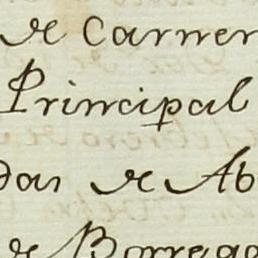 de Carner
Principal
das de Ab
de Borrego